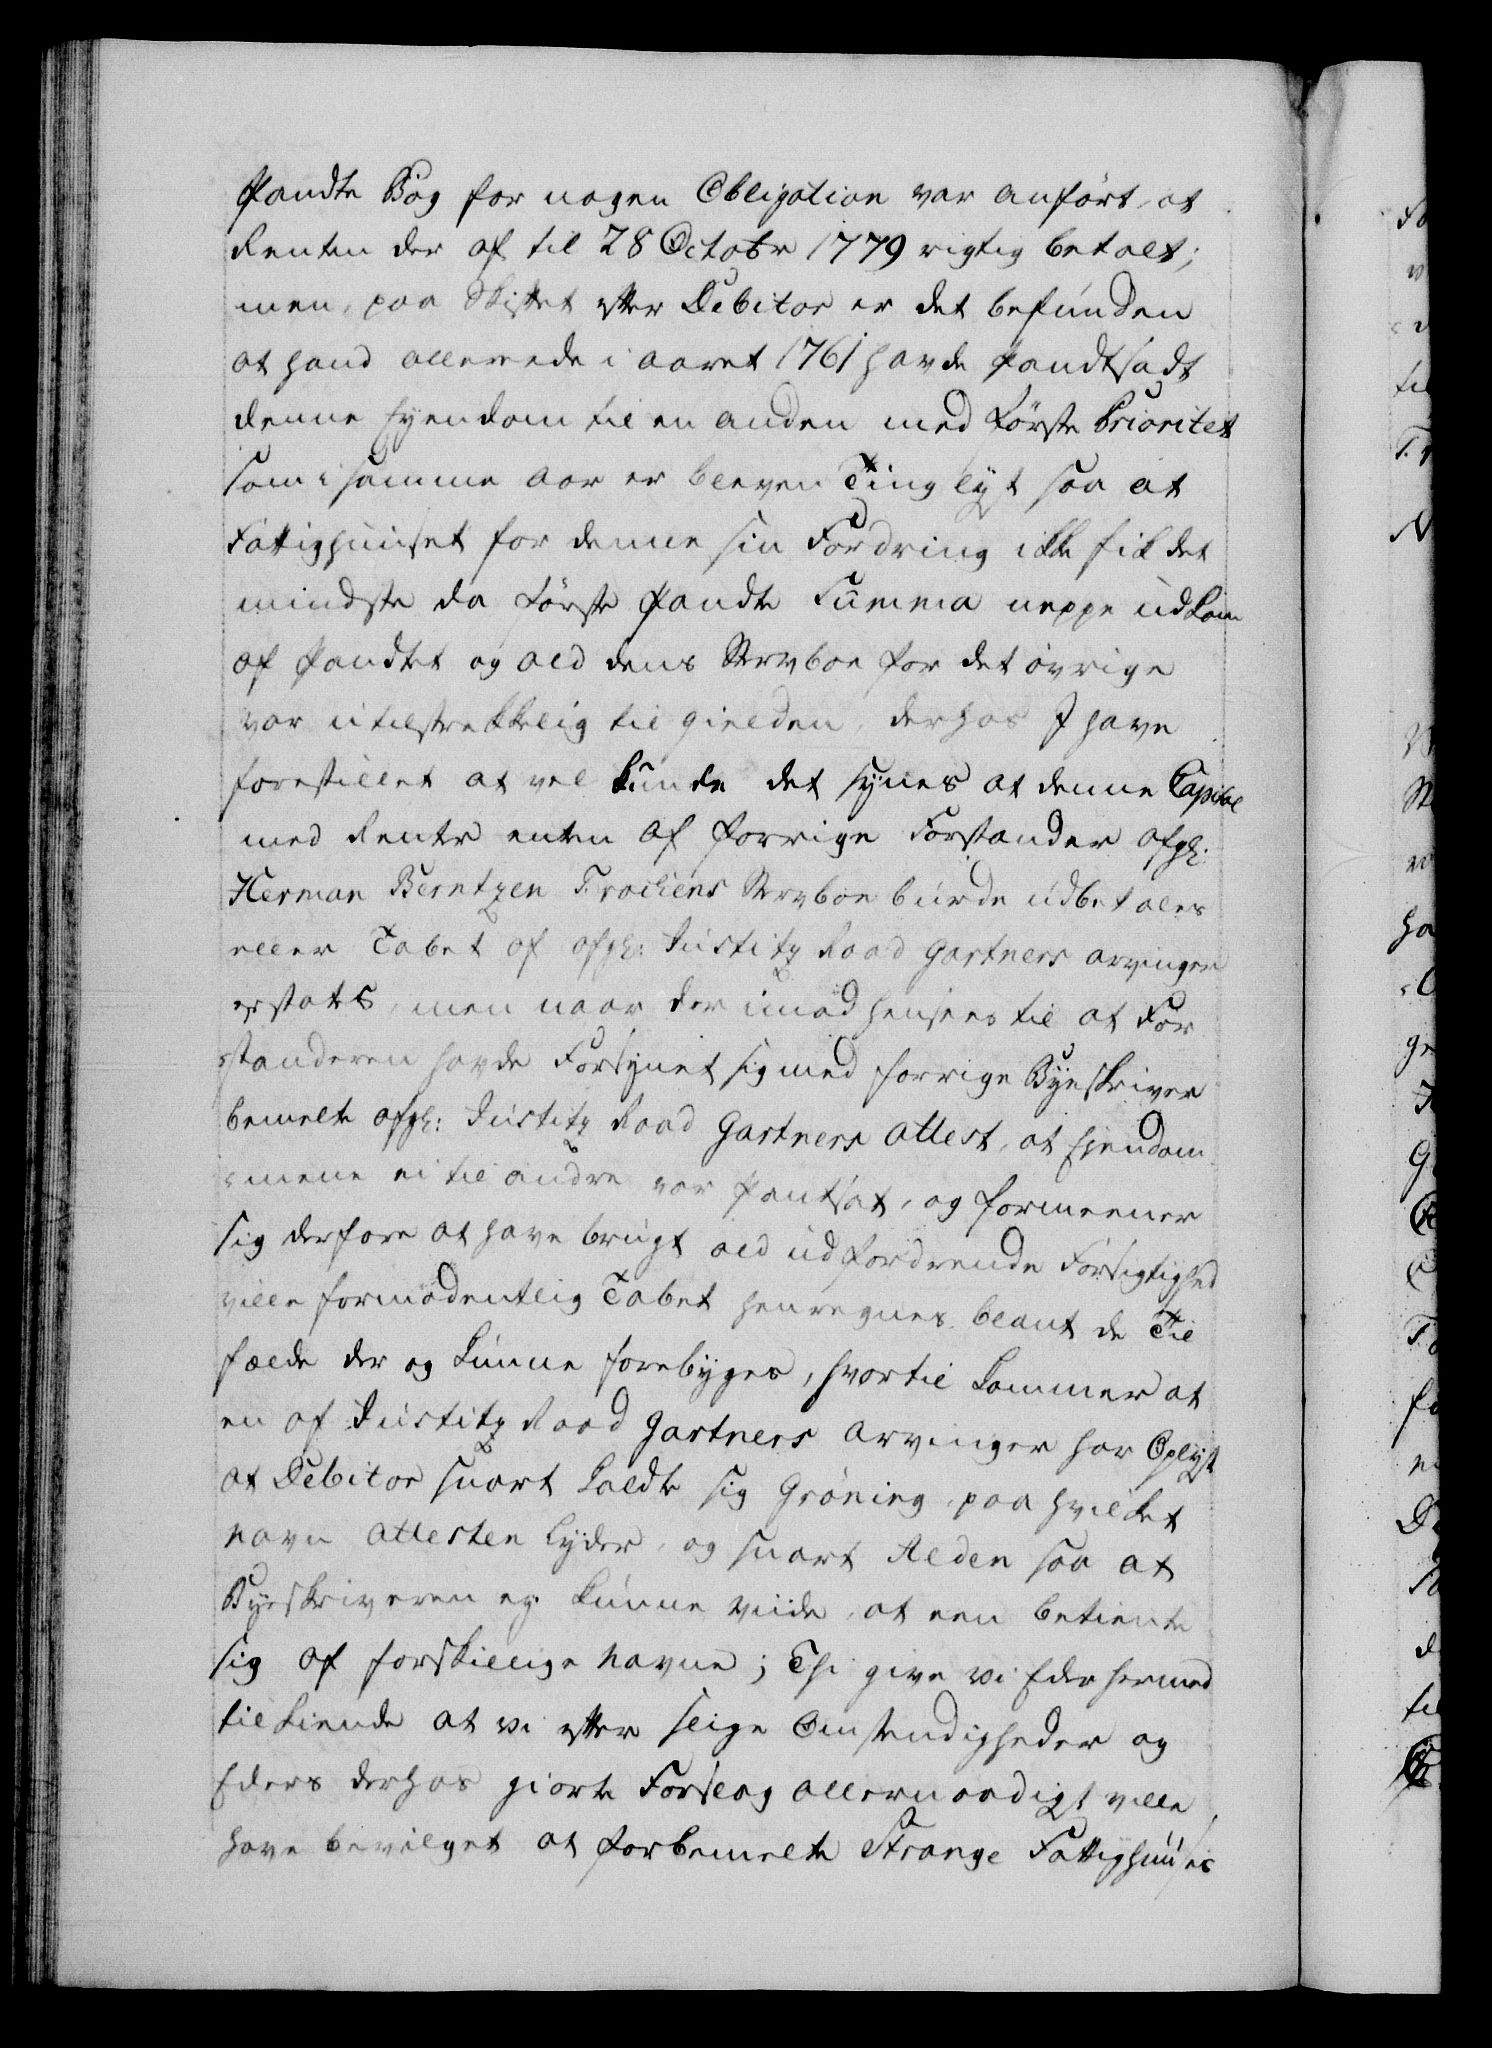 Pandte Bog for nogen Obligation var anført, at
Renten der af til 28 Octobr 1779 rigtig betalt;
men, paa Skiftet efter Debitor er det befunden
at hand allerede i aaret 1761 havde Pandtsadt
denne Eyendom til en anden med Første Prioritet
som i samme aar er bleven Tinglyst saa at
Fattighuuset for denne sin Fordring ikke fik det
mindste da første Pandte Summa neppe udkom
af Pandtet og ald dens Sterboe for det øvrige
var utilstrekkelig til gielden, derhos I have
forestillet at vel kunde det synes at denne Capital
med Renter enten af forrige Forstander afgl:
Herman Berntzen Sterboe burde udbetales
eller Tabet af afgl: Justitz Raad Gartners arvinger
erstattes, men naar der imod hensees til at For
standeren havde Forsynet sig med forrige Byeskriver
bemelte afgl: Justitz Raad Gartners attest, at Eyendom
=mene ei til andre var Pantsat, og formeener
sig derfore at have brugt ald udfordrende Forsigtighed
ville formodentlig Tabet henregnes blant de Til
fælde der og kunne forebyges, hvortil kommer at
en af Justitz Raad Gartners Arvinger har Oplyst
at Debitor snart kaldte sig Grøning, paa hvilket
Navn Attesten lyder, og snart Alden saa at
Byeskriveren ey kunne viide, at een betiente
sig af forskiellige Navne; Thi give vi Eder hermed
tilkiende at vi efter slige Omstendigheder og
Eders derhos giorte Forslag allernaadigst ville
have bevilget at forbemelte Strange Fattighuuses